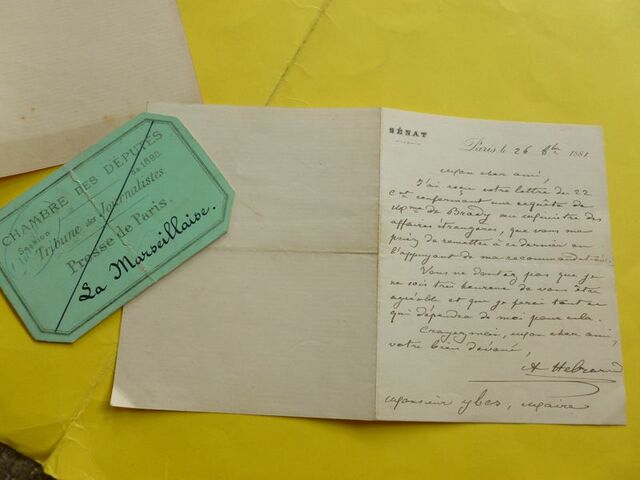 CHAMBRE DES DÉPUTÉS
Session de 1890.
Tribune des Journalistes.
Presse de Paris.
La Marseillaise.
SÉNAT
Paris, le 26 8bre 1881
Mon cher ami,
J'ai reçu votre lettre du 22
ct renfermant une requête de
Mme de Brady au ministre des
affaires étrangères, que vous me
priez de remettre à ce dernier en
l'appuyant de ma recommandation.
Vous ne doutez pas que je
ne sois très heureux de vous être
agréable et que je ferai tout ce
qui dépendra de moi pour cela.
Croyez moi, mon cher ami,
votre bien dévoué,
A Hebrard
Monsieur Ybes, Maire